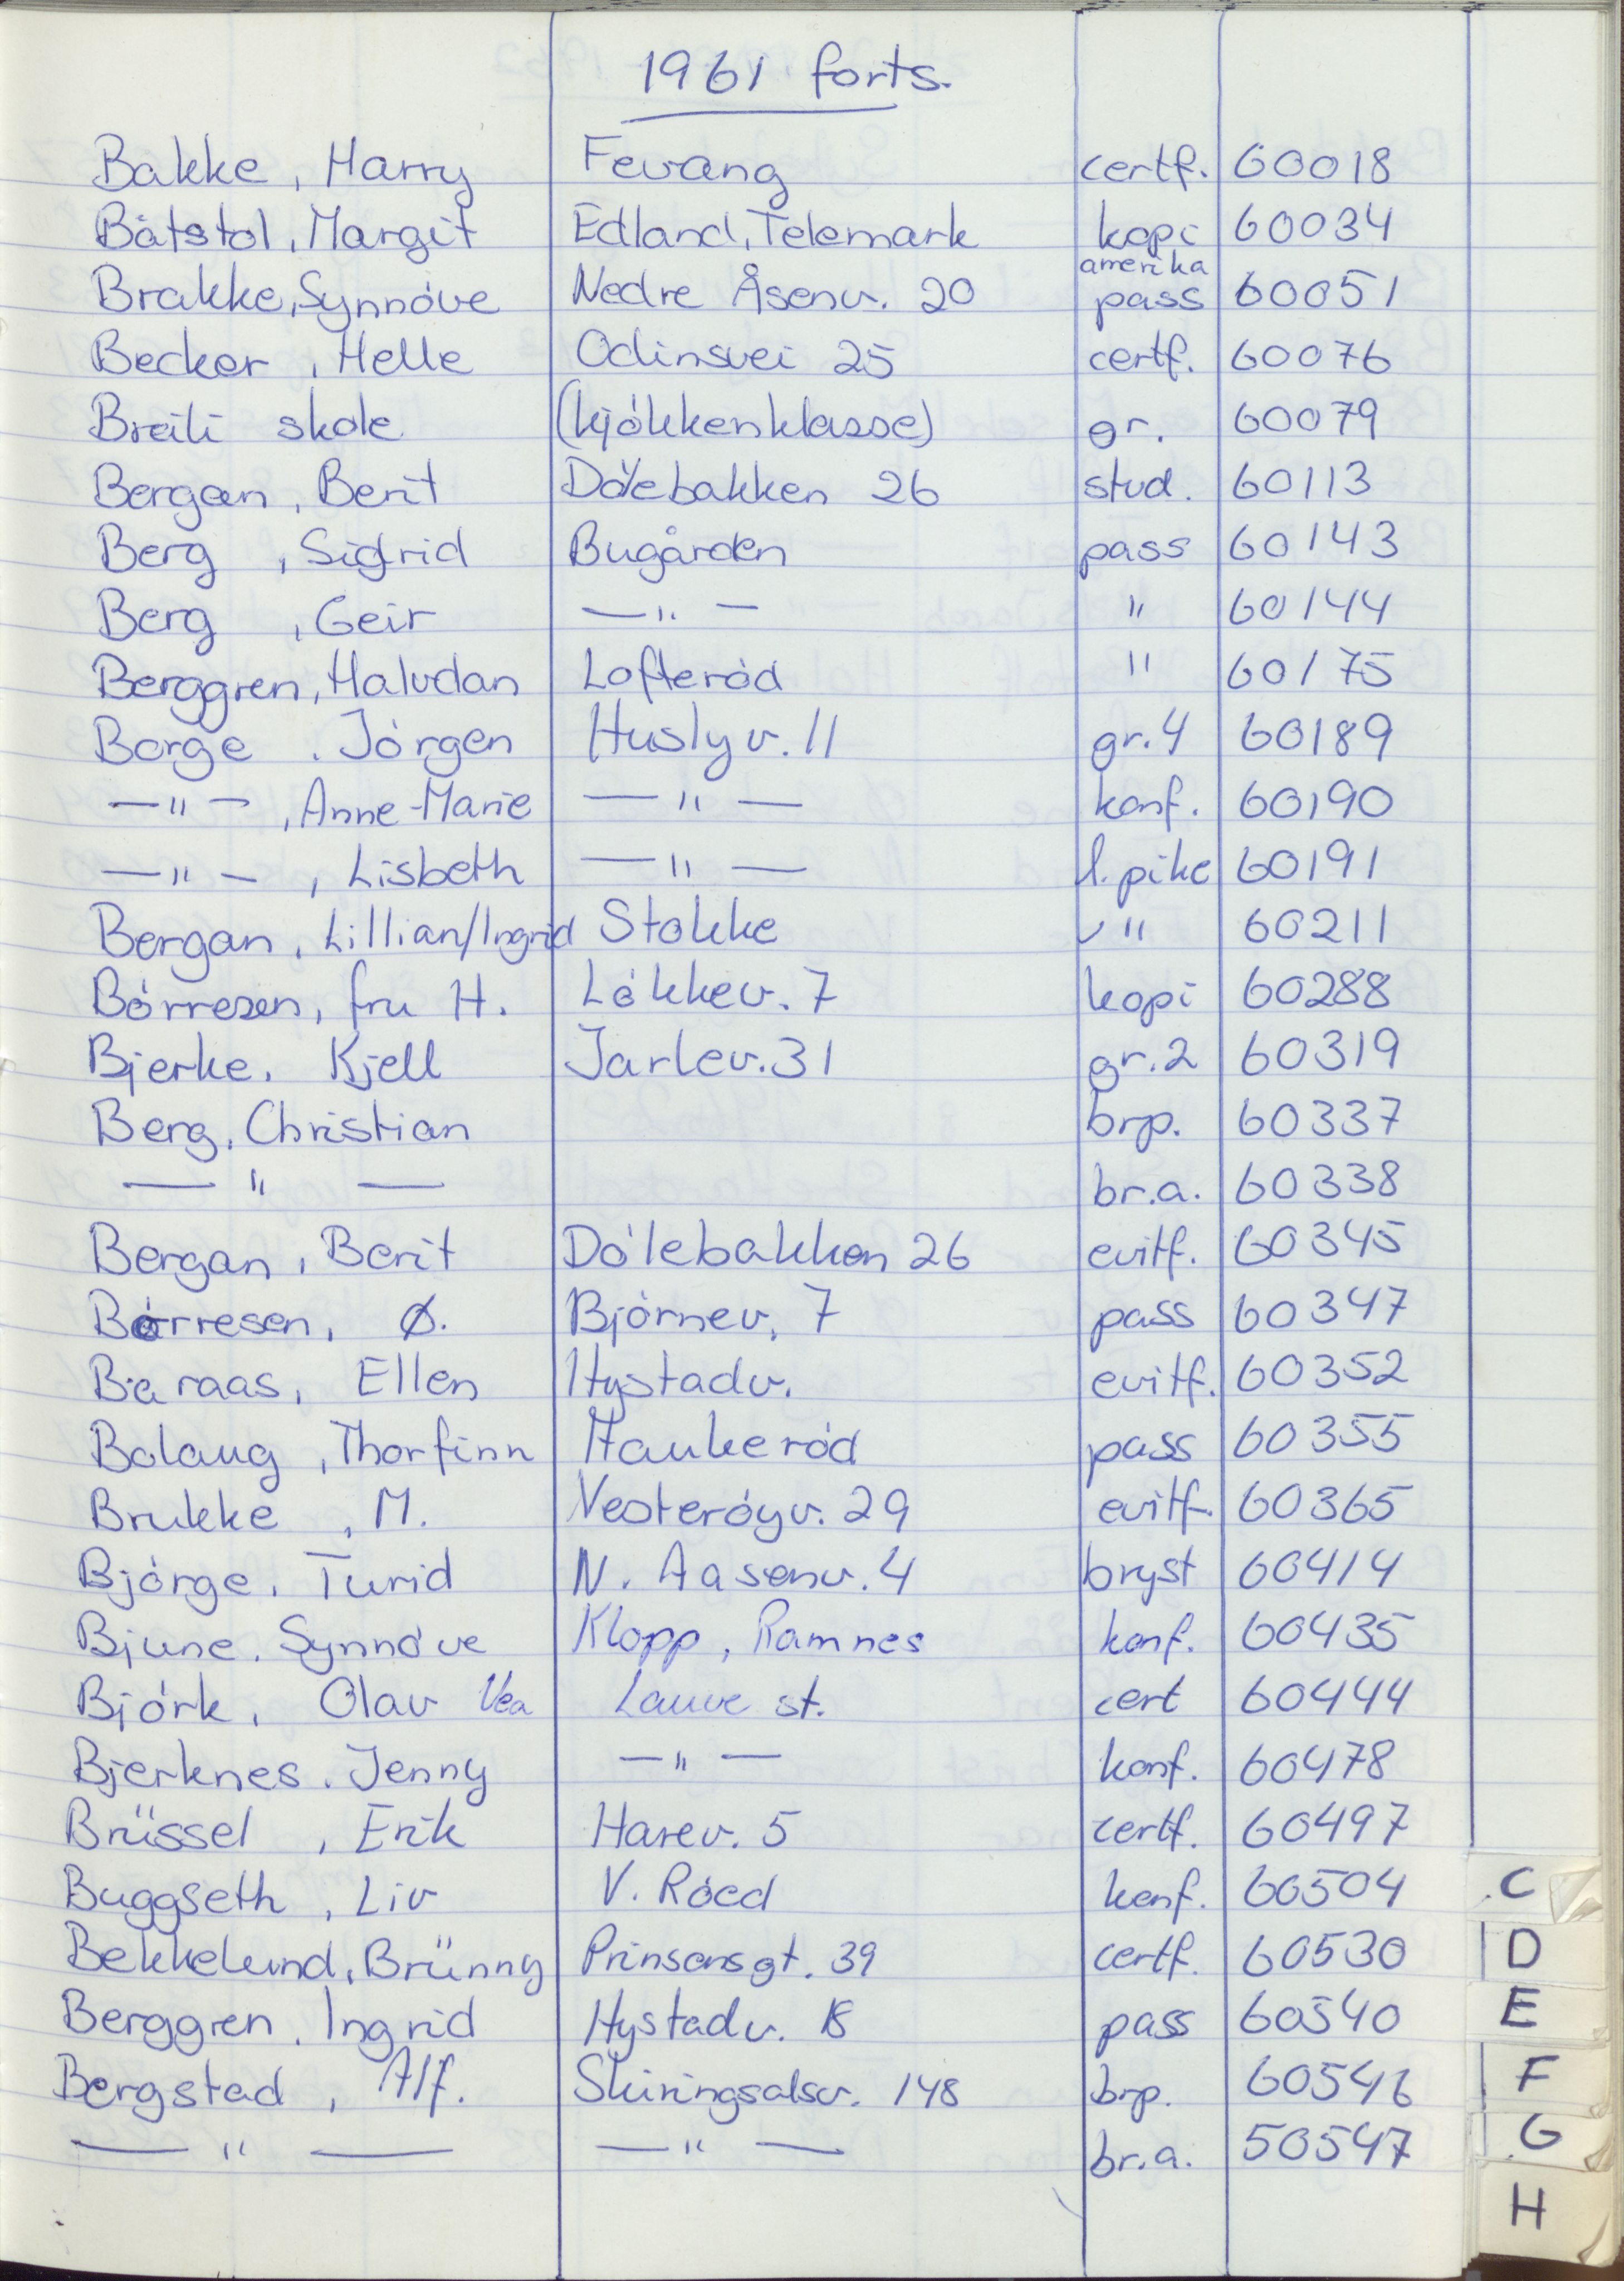 1961 forts.
Bakke, Harry Fevang certf. 60018
Båtstol, Margit Edland, Telemark kopi 60034
Brakke, Synnóve Nedre Åsenv. 20 amerika pass 60051
Becker, Helle Odinsvei 25 certf. 60076
Breili skole (kjókkenklasse) gr. 60079
Bergan, Berit Dólebakken 26 stud. 60113
Berg, Sigrid Bugården pass 60143
Berg, Geir —"— " 60144
Berggren, Halvdan Lofteród " 60175
Borge, Jórgen Huslyv. 11 gr. 4 60189
—"—, Anne-Marie —"— konf. 60190
—"—, Lisbeth —"— l. pike 60191
Bergan, Lillian/Ingrid Stokke " 60211
Bórresen, fru H. Lókkev. 7 kopi 60288
Bjerke, Kjell Jarlev. 31 gr. 2 60319
Berg, Christian brp. 60337
—"— br.a. 60338
Bergan, Berit Dólebakken 26 evitf. 60345
Bórresen, Ø. Bjórnev. 7 pass 60347
Baraas, Ellen Hystadv. evitf. 60352
Bolaug, Thorfinn Haukeród pass 60355
Brukke, M. Vesteróyv. 29 evitf. 60365
Bjórge, Turid N. Aasenv. 4 bryst 60414
Bjune, Synnóve Klopp, Ramnes konf. 60435
Bjórk, Olav Vea Lauve st. cert 60444
Bjerknes, Jenny —"— konf. 60478
Brüssel, Erik Harev. 5 certf. 60497
Buggseth, Liv V. Róed konf. 60504
Bekkelund, Brünny Prinsensgt. 39 certf. 60530
Berggren, Ingrid Hystadv. 18 pass 60540
Bergstad, Alf. Skiringsalsv. 148 brp. 60546
—"— —"— br.a. 50547
C
D
E
F
G
H